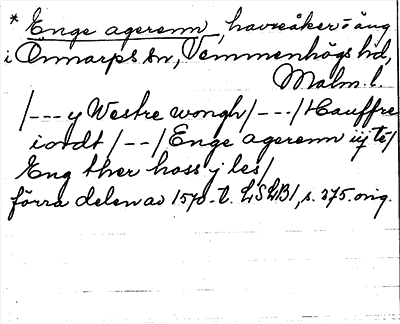 * Enge agerenn, havreåker = äng
i Önnarps sn, Vemmenhögs hd,
Malm. l.
/---y Westre wongh/---/Hauffre
iordt/--/Enge agerenn iij te/
Eng ther hoss j les/
förra delen av 1570-t. LSLB1, s. 375. orig.